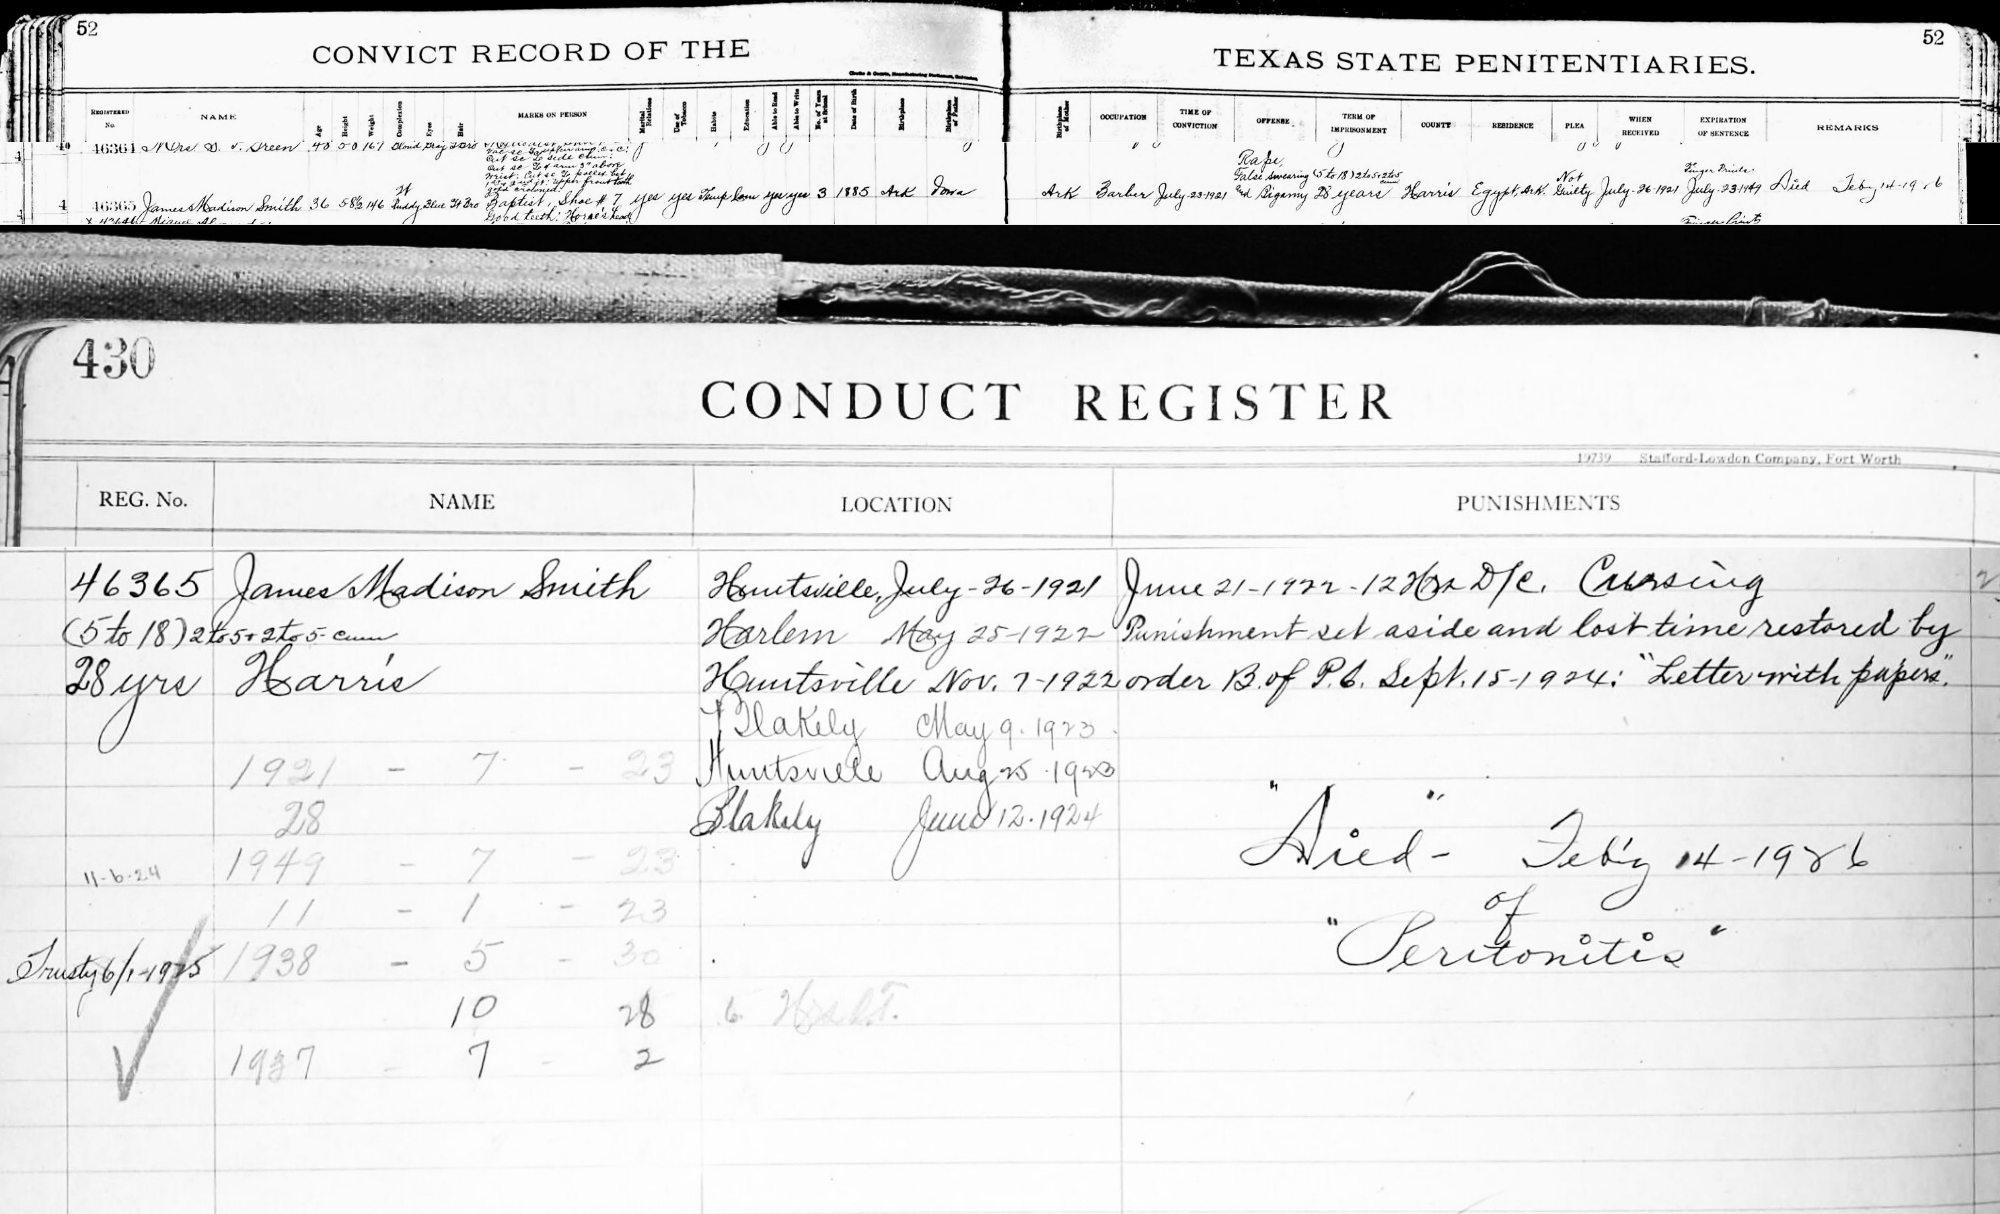 52
CONVICT RECORD OF THE
TEXAS STATE PENITENTIARIES.
52
REGISTERED No. NAME Age Height Weight Complexion Eyes Hair MARKS ON PERSON Marital Relations Use of Tobacco Habits Education Able to Read Able to Write No. of Years at School Date of Birth Birthplace Birthplace of Father Birthplace of Mother OCCUPATION TIME OF CONVICTION OFFENSE. TERM OF IMPRISONMENT COUNTY RESIDENCE PLEA WHEN RECEIVED EXPIRATION OF SENTENCE REMARKS
46364 Mrs Green 40 50 167
Cut sc L side chin:
Rape,
False Swearing (5 to 18) 2 to 5 + 2 to 5 cum
Finger Prints
46365 James Madison Smith 36 58½ 146 Ruddy Blue Baptist, Shoe # 7 yes yes Temp Com yes yes 3 1885 Ark Iowa Ark Barber July-23-1921 and Bigamy 28 years Harris Egypt, Ark. Not Guilty July-26-1921 July-23-1949 Died Feb'y 14-1926
Good teeth:
Finger Prints
430
CONDUCT REGISTER
19739 Stafford-Lowdon Company, Fort Worth
REG. No. NAME LOCATION PUNISHMENTS
46365 James Madison Smith Huntsville, July-26-1921 June 21-1922-12 Hrs D/C. Cursing
(5 to 18) 2 to 5 + 2 to 5 cum Harlem May 25-1922 Punishment set aside and lost time restored by
28 yrs Harris Huntsville Nov. 7-1922 order B. of P.C. Sept. 15-1924: "Letter with papers".
Blakely May 9. 1923.
1921 - 7 - 23 Huntsville Aug 25 1923
28 Blakely June 12. 1924
"Died" - Feb'y 14-1926
11-6-24 1949 - 7 - 23
of
11 - 1 - 23
"Peritonitis"
Trusty 6/1-1925 1938 - 5 - 30
10 28
1937 - 7 - 2